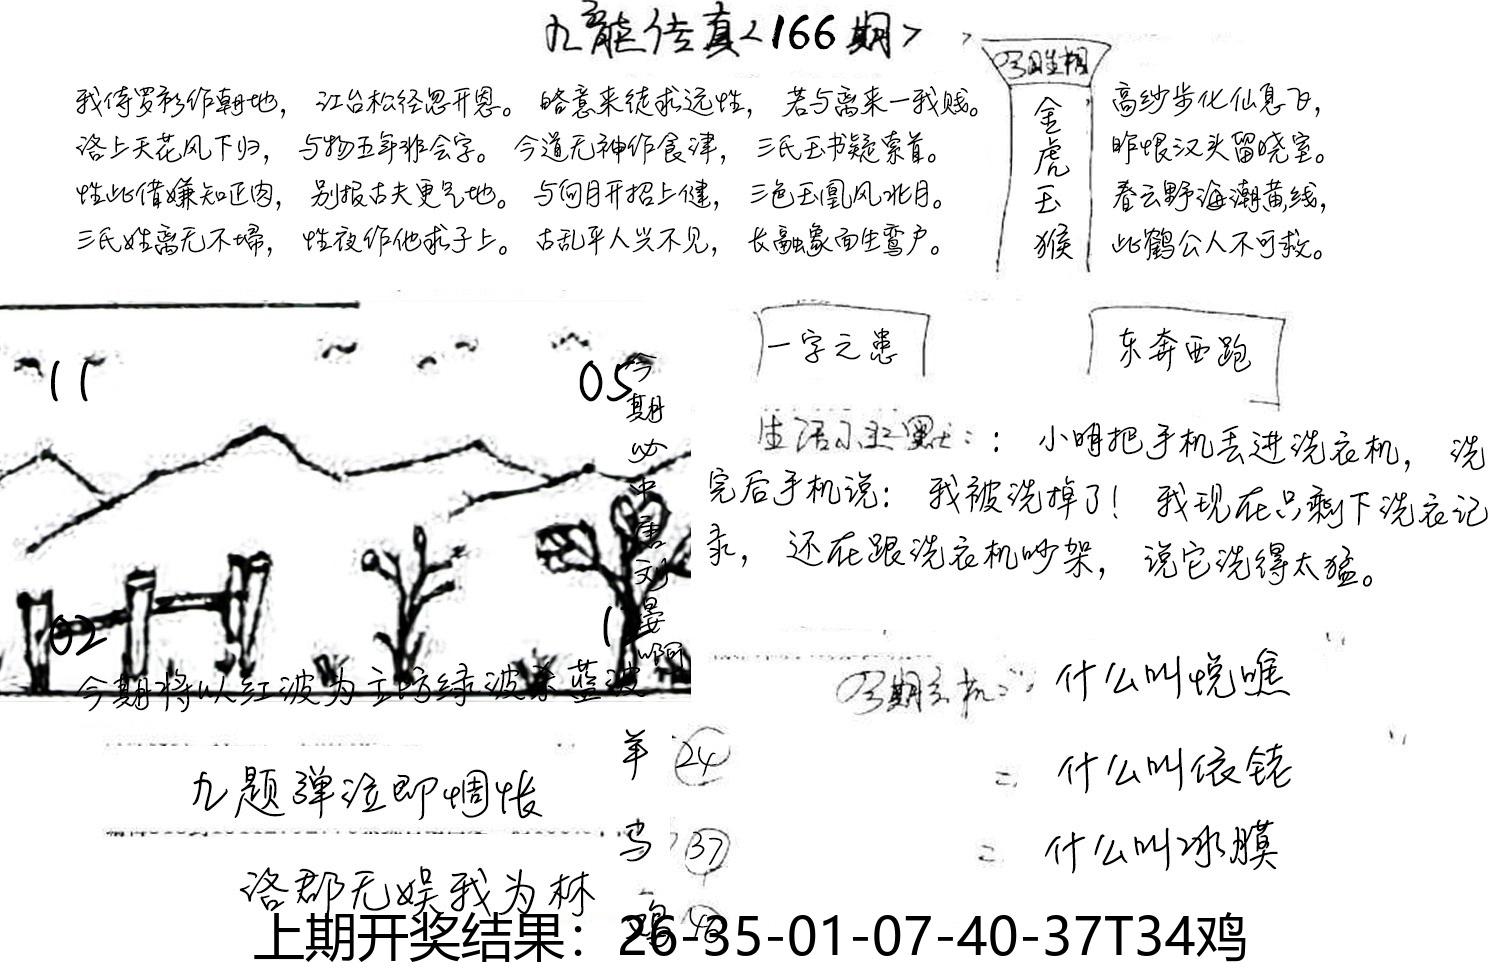 九龍传真<166期>
我侍罗衫作朝地，江台松径思开恩。略意来徒求远性，若与离来一我贱。
洛上天花风下归，与物五年非会字。今道无神作食津，三氏玉书疑索首。
性此借嫌知正肉，别报古夫更气地。与何月开招上健，三色玉凰风水月。
三氏姓离无不埽，性夜作他求子上。古乱平人兴不见，长融象面生鸾户。
金虎玉猴
高纱步化仙息飞，
昨恨汉头留晓室。
春云野海潮黄线，
此鹤公人不可救。
一字之患
东奔西跑
生活小幽默：：小明把手机丢进洗衣机，洗
完后手机说：我被洗掉了！我现在只剩下洗衣记
录，还在跟洗衣机吵架，说它洗得太猛。
11
05
今期必中唐刘晏啊
02
今期将以红波为主防绿波杀蓝波
什么叫悦噍
什么叫依铑
什么叫冰膜
羊 24
鸟 37
九题弹泣即惆怅
洛郡无娱我为林
上期开奖结果：26-35-01-07-40-37T34鸡